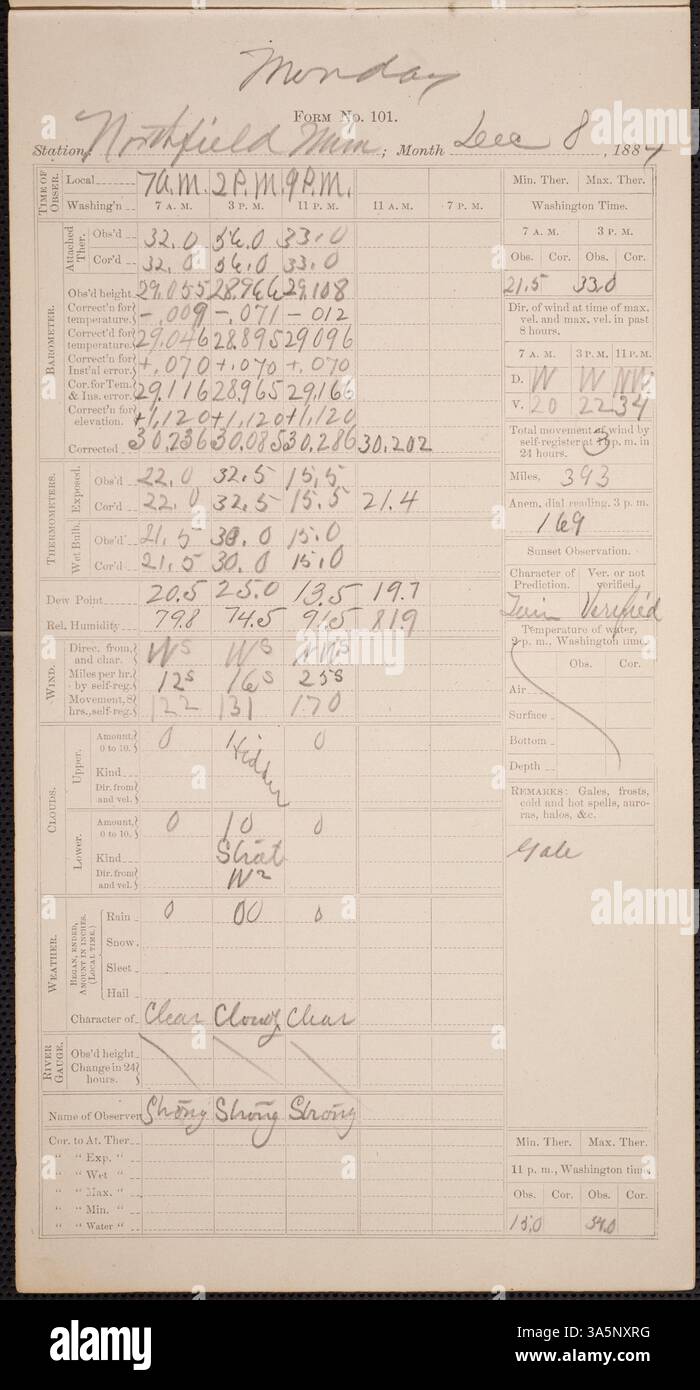 Monday
FORM No. 101.
Station, Northfield Minn; Month Dec 8, 1884
TIME OF OBSER.
Local 7 A.M. 2 P.M. 9 P.M.
Washing'n 7 A. M. 3 P. M. 11 P. M. 11 A. M. 7 P. M.
BAROMETER.
Attached Ther.
Obs'd 32.0 56.0 33.0
Cor'd 32.0 56.0 33.0
Obs'd height 29.055 28.966 29.108
Correct'n for temperature. -.009 -.071 -012
Correct'd for temperature. 29.046 28.895 29.096
Correct'n for Inst'al error. +.070 +.070 +.070
Cor. for Tem. & Ins. error. 29.116 28.965 29.166
Correct'n for elevation. +1.120 +1.120 +1.120
Corrected 30.236 30.085 30.286 30.202
THERMOMETERS.
Exposed.
Obs'd 22.0 32.5 15.5
Cor'd 22.0 32.5 15.5 21.4
Wet Bulb.
Obs'd 21.5 30.0 15.0
Cor'd 21.5 30.0 15.0
Dew Point 20.5 25.0 13.5 19.7
Rel. Humidity 79.8 74.5 91.5 81.9
WIND.
Direc. from, and char. W S W S
Miles per hr. by self-reg. 12s 16s 25s
Movement, 8 hrs., self-reg. 122 131 170
CLOUDS.
Upper.
Amount, 0 to 10. 0 Hidden 0
Kind
Dir. from and vel.
Lower.
Amount, 0 to 10. 0 10 0
Kind Strat
Dir. from and vel. W 2
WEATHER.
BEGAN, ENDED, AMOUNT IN INCHES. (LOCAL TIME.)
Rain 0 00 0
Snow.
Sleet
Hail
Character of Clear Cloudy Clear
RIVER GAUGE.
Obs'd height
Change in 24 hours.
Name of Observer Strong Strong Strong
Cor. to At. Ther.
" " Exp. "
" " Wet "
" " Max. "
" " Min. "
" " Water "
Min. Ther. Max. Ther.
Washington Time.
7 A. M. 3 P. M.
Obs. Cor. Obs. Cor.
21.5 33.0
Dir. of wind at time of max. vel. and max. vel. in past 8 hours.
7 A. M. 3 P. M. 11 P. M.
D. W W
V. 20 22 34
Total movement of wind by self-register at 3 p. m. in 24 hours.
Miles, 393
Anem. dial reading, 3 p. m.
169
Sunset Observation.
Character of Prediction. Ver. or not verified.
Verified
Temperature of water, 2 p. m., Washington time.
Obs. Cor.
Air
Surface
Bottom
Depth
REMARKS: Gales, frosts, cold and hot spells, auroras, halos, &c.
Gale
Min. Ther. Max. Ther.
11 p. m., Washington time.
Obs. Cor. Obs. Cor.
15.0 34.0
alamy
Image ID: 3A5NXRG
www.alamy.com